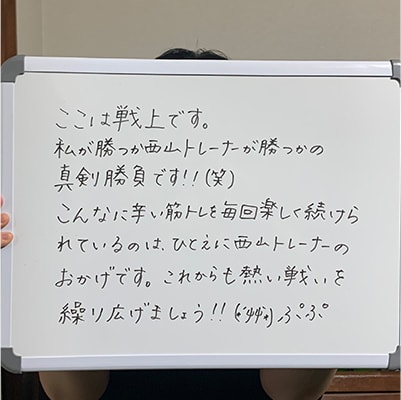 ここは戦上です。
私が勝つか西山トレーナーが勝つかの
真剣勝負です!!(笑)
こんなに辛い筋トレを毎回楽しく続けら
れているのは、ひとえに西山トレーナーの
おかげです。これからも熱い戦いを
繰り広げましょう!!(*艸*)ぷぷ